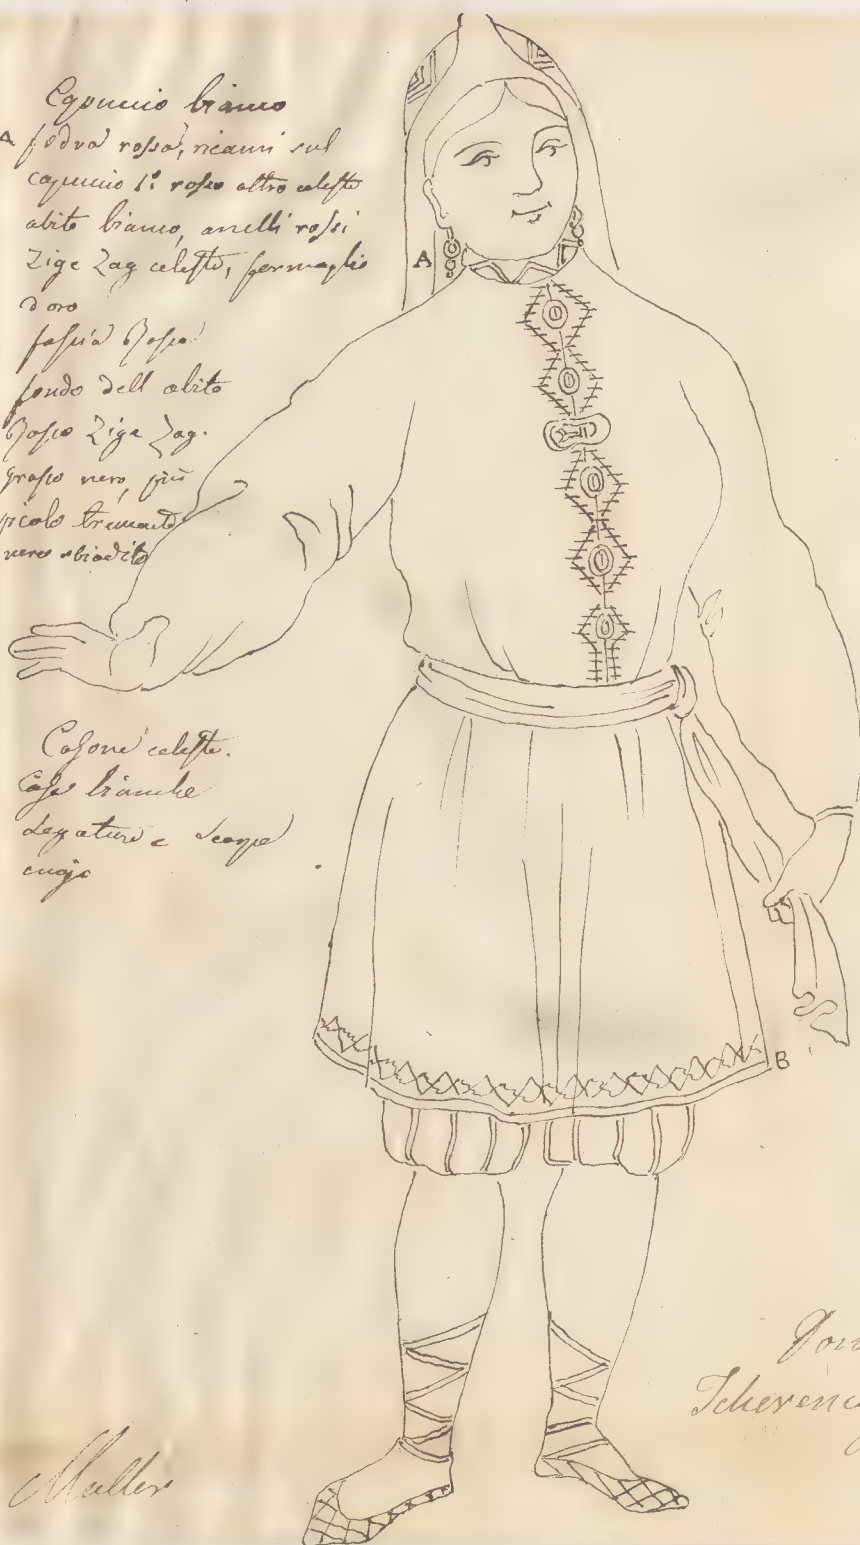 Capuccio bianco
A fodra rossa, ricami sul
capuccio 1º rosso altro celeste
abito bianco, anelli rossi
Zige Zag celeste, fermaglio
d'oro
fascia Rossa
fondo dell abito
Rosso Zige Zag.
grosso nero, più
picolo
nero sbiadito
A
B
Calzone celeste.
Calze bianche
Legature e Scarpe
cuojo
Muller